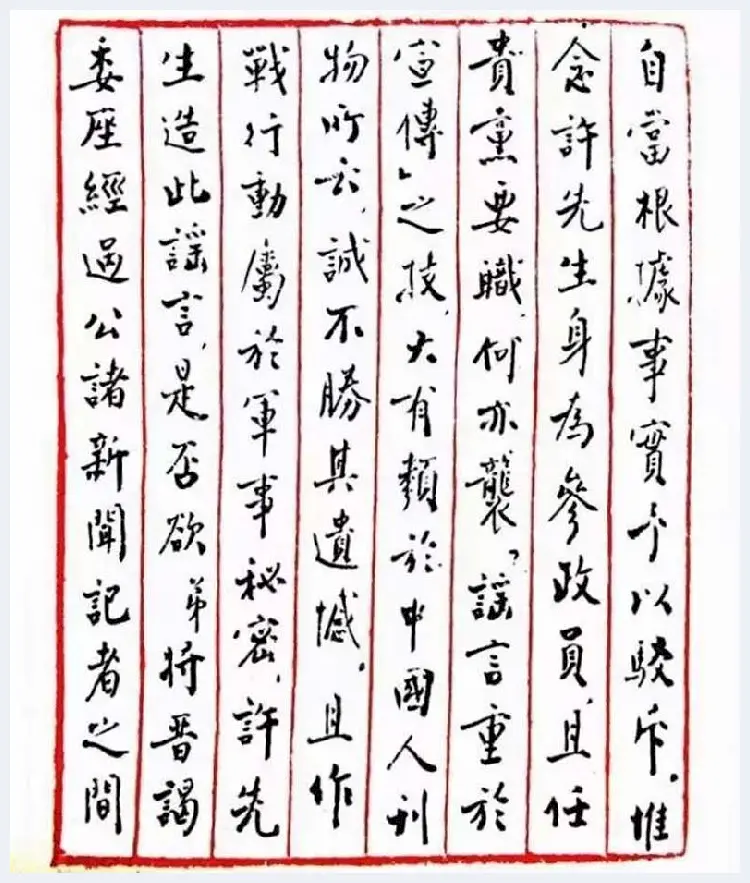 自當根據事實予以駁斥。惟
念許先生身為參政員、且任
貴黨要職、何亦襲「謠言重於
宣傳」之技、大有類於中國人刊
物所云、誠不勝其遺憾。且作
戰行動屬於軍事秘密、許先
生造此謠言、是否欲弟將晉謁
委座經過公諸新聞記者之間